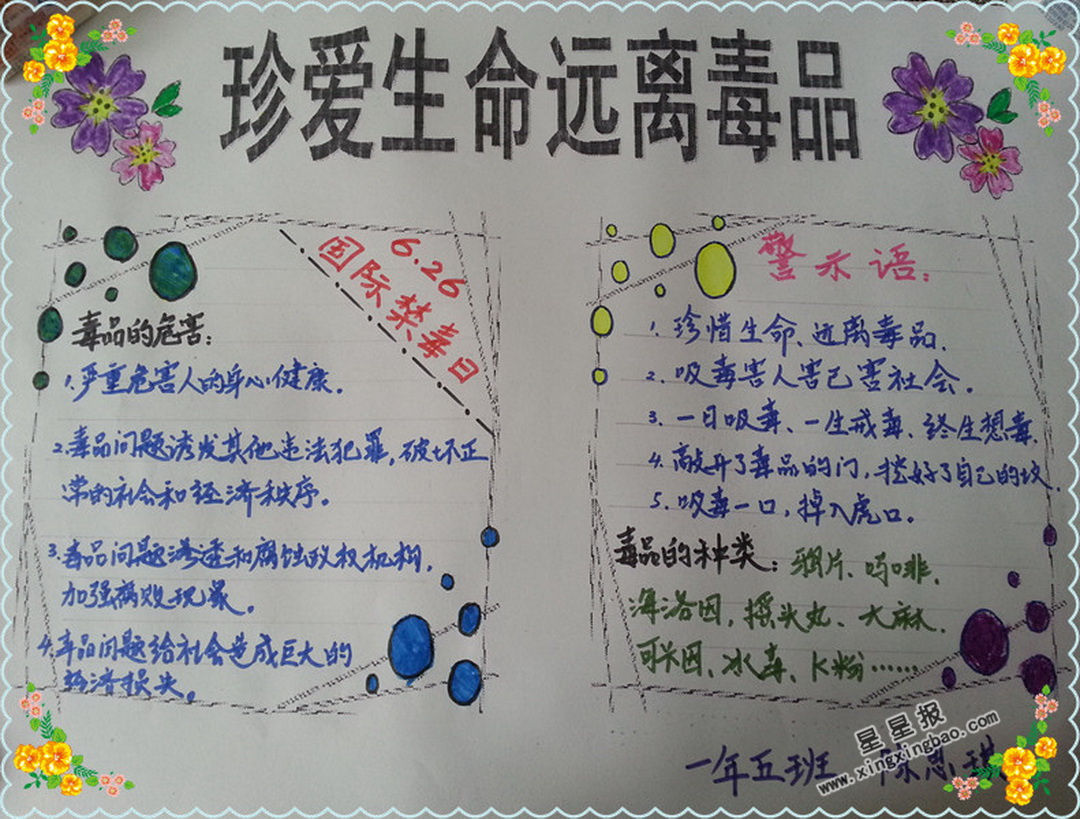 珍爱生命远离毒品
6.26
国际禁毒日
毒品的危害:
1.严重危害人的身心健康.
2.毒品问题诱发其他违法犯罪,破坏正
常的社会和经济秩序.
3.毒品问题渗透和腐蚀政权机构,
加强腐败现象.
4.毒品问题给社会造成巨大的
经济损失.
警示语:
1.珍惜生命、远离毒品.
2.吸毒害人害己害社会.
3.一日吸毒、一生戒毒、终生想毒.
4.敲开了毒品的门,挖好了自己的坟.
5.吸毒一口,掉入虎口.
毒品的种类:鸦片、吗啡.
海洛因,摇头丸、大麻.
可卡因、冰毒、K粉……
一年五班 陈思琪
星星报
www.xingxingbao.com